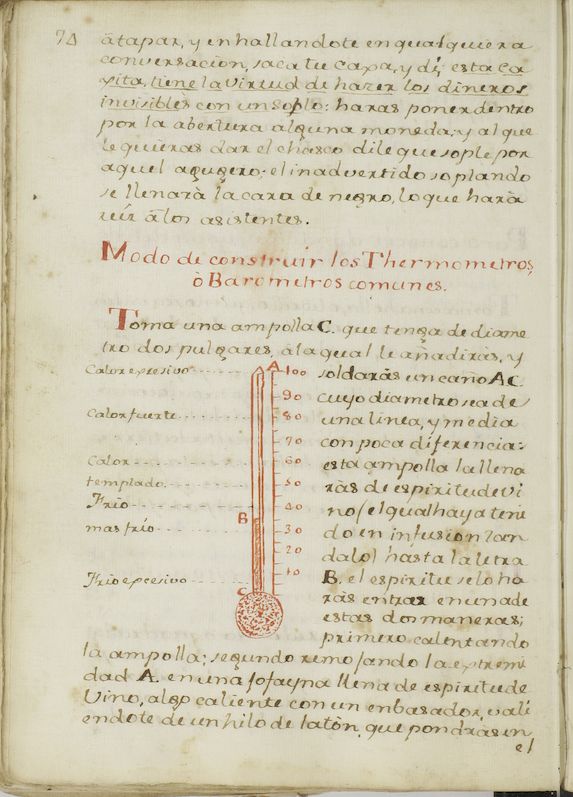 74
átapar, y en hallandote en qualquiera
conversacion, saca tu caxa, y dí, esta ca
xita, tiene la virtud de hazer los dineros
invisibles con un soplo: haras poner dentro
por la abertura alguna moneda, y al que
le quieras dar el chasco dile que sople por
aquel agugero; el inadvertido soplando
se llenarà la cara de negro, lo que harà
reir à los asistentes.
Modo de construir los Thermometros,
ò Barometros comunes.
Toma una ampolla C. que tenga de diame
tro dos pulgares, a la qual le añadiràs, y
soldaràs un caño A C.
cuyo diametro sea de
una linea, y media
con poca diferencia:
esta ampolla la llena
ràs de espiritu de Vi
no (el qual haya teni
do en infusion
dalo) hàsta la letra
B. el espiritu se lo ha
ràs entrar en una de
estas dos maneras;
primero calentando
la ampolla; segundo remojando la extremi
dad A. en una jofayna llena de espiritu de
Vino, algo caliente con un enbasador, vali
endote de un hilo de latòn, que pondràs en
el
Calor excesivo
Calor fuerte
Calor
templado
Frio
mas frio
Frio excesivo
A
B
C
100
90
80
70
60
50
40
30
20
10